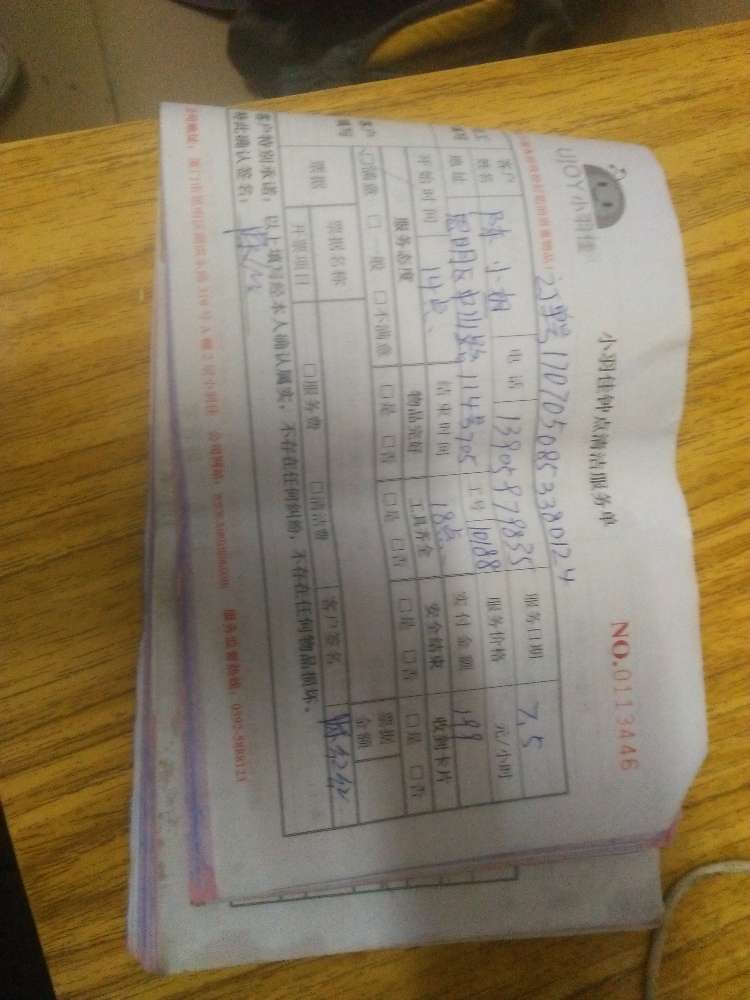 UJOY小羽佳
小羽佳钟点清洁服务单
NO.0113446
订单号1707050853380124
客户 姓名 陈小姐 电话 13905879835 服务日期 7.5
地址 思明区中山路114号705 工号 10188 服务价格 元/小时
开始时间 14点 结束时间 18点 实付金额 199
服务态度 物品完好 工具齐全 安全结束 收到卡片
☑满意 □一般 □不满意 □是 □否 □是 □否 □是 □否 □是 □否
客户填写 票据 票据名称 客户签名 票据金额
开票项目 □服务费 □清洁费
客户特别承诺：以上填写经本人确认属实，不存在任何纠纷，不存在任何物品损坏。
特此确认签名：
公司网址：www.xiaoyujia.com 服务监督热线：0592-5888121